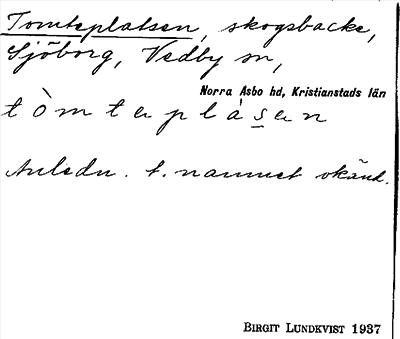 Tomteplatsen, skogsbacke,
Sjöborg, Vedby sn,
Norra Åsbo hd, Kristianstads län
tòmteplàsen
Anledn. t. namnet okänd.
BIRGIT LUNDKVIST 1937